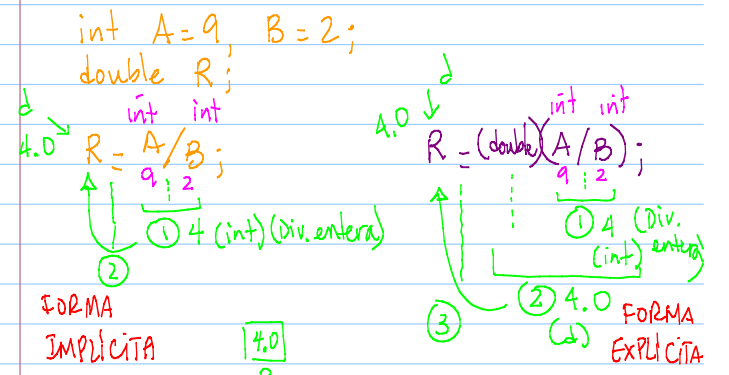 int A=9, B=2;
double R;
d
int int
4.0
R = A/B;
9 2
① 4 (int) (Div. entera)
②
FORMA
IMPLÍCITA
4.0
d
int int
4.0
R = (double)(A/B);
9 2
① 4 (Div. entera)
(int)
② 4.0
(d)
③
FORMA
EXPLÍCITA